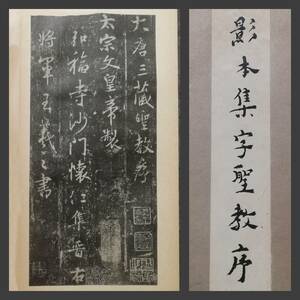 大唐三藏聖教序
太宗文皇帝製
弘福寺沙門懷仁集晉右
將軍王羲之書
影本集字聖教序